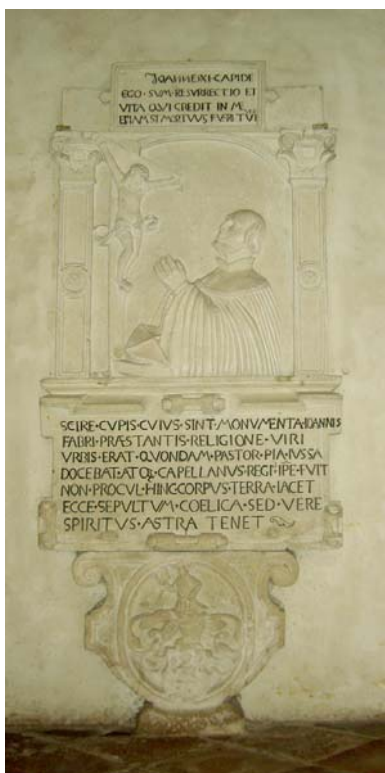 IOANNE·XI·CAPI DE
EGO·SUM·RESVRRECTIO ET
VITA QVI CREDIT IN ME
ETIAM SI MORTVVS FVERIT VI
SCIRE·CVPIS·CVIVS·SINT·MONVMENTA·IOANNIS
FABRI·PRÆSTANTIS·RELIGIONE·VIRI
VRBIS·ERAT·QVONDAM·PASTOR·PIA·IVSSA
DOCEBAT·ATQ·CAPELLANVS·REGI·IPE·FVIT
NON·PROCVL·HINC·CORPVS·TERRA·IACET
ECCE·SEPVLTVM·COELICA·SED·VERE
SPIRITVS·ASTRA·TENET